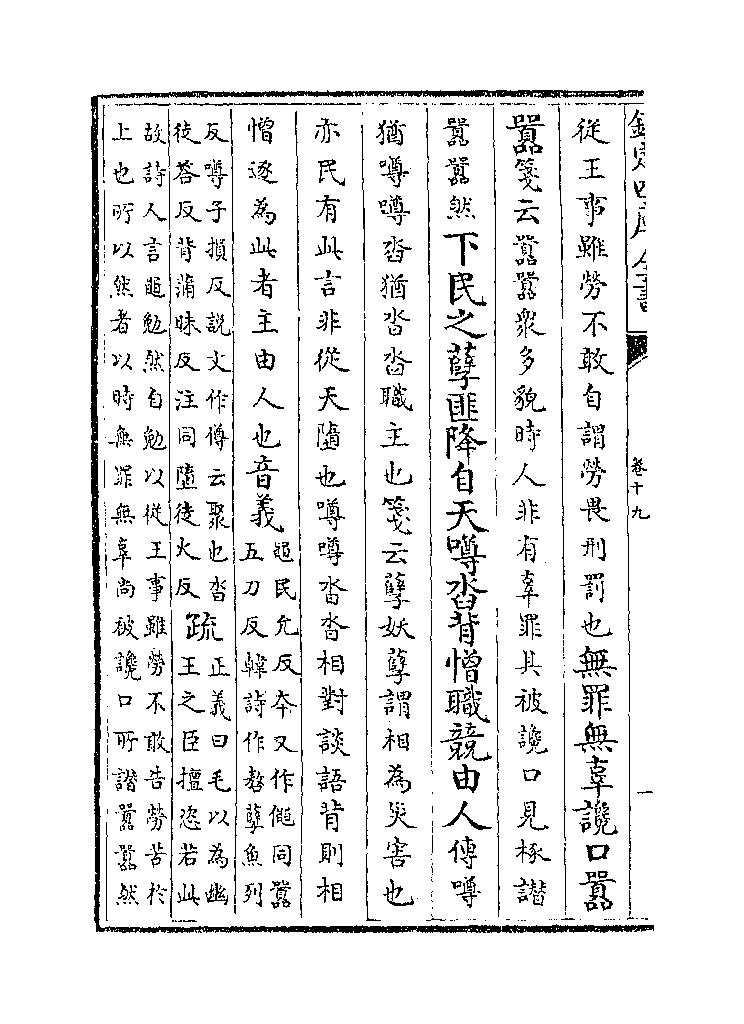 欽定四庫全書
卷十九
一
從王事雖勞不敢自謂勞畏刑罰也無罪無辜讒口囂
囂箋云囂囂衆多貌時人非有辜罪其被讒口見椓譖
囂囂然下民之孽匪降自天噂沓背憎職競由人傳噂
猶噂噂沓猶沓沓職主也箋云孽妖孽謂相為災害也
亦民有此言非從天墮也噂噂沓沓相對談語背則相
憎逐為此者主由人也音義黽民允反本又作僶同囂
五刀反韓詩作嗸孽魚列
反噂子損反說文作僔云聚也沓
徒荅反背蒲昧反注同墮徒火反疏正義曰毛以為幽
王之臣擅恣若此
故詩人言黽勉然自勉以從王事雖勞不敢告勞苦於
上也所以然者以時無罪無辜尚被讒口所譖囂囂然